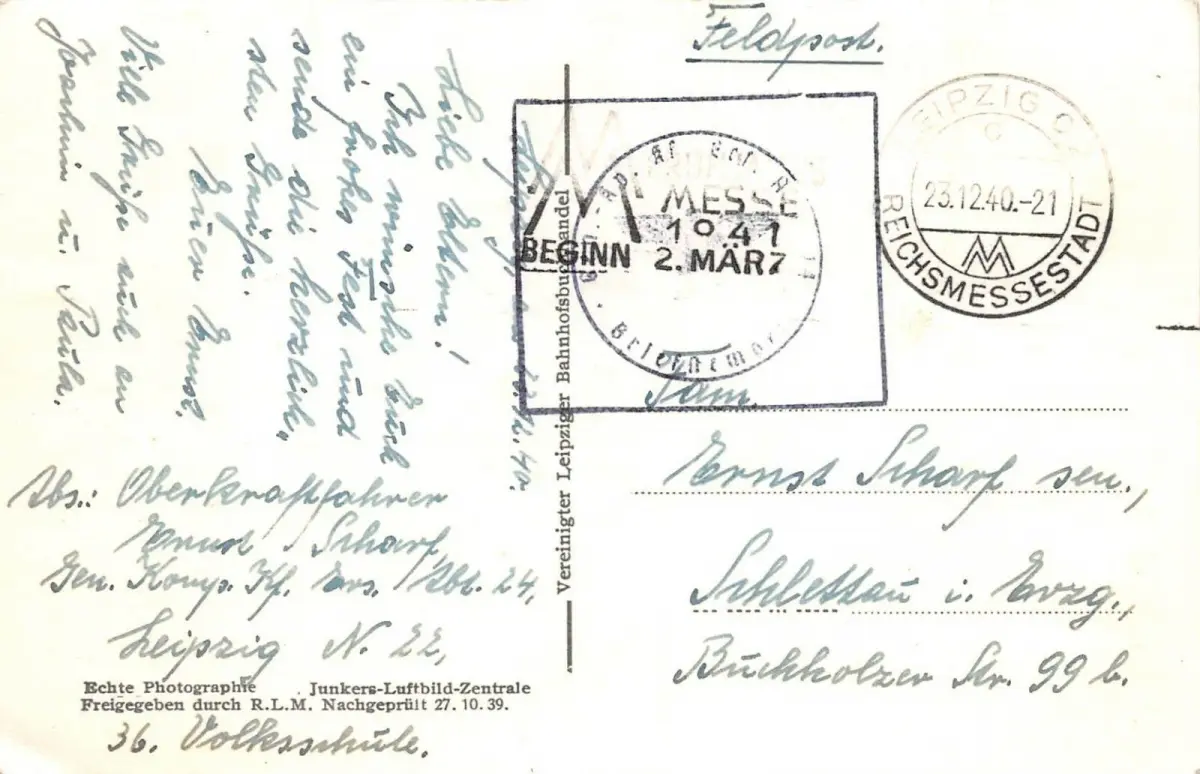 Feldpost.
LEIPZIG C
C
23.12.40.-21
REICHSMESSESTADT
MESSE
1941
BEGINN 2. MÄRZ
Briefstempel
Leipzig, 23.12.40.
Liebe Eltern!
Ich wünsche Euch
ein frohes Fest und
sende die herzlich„
sten Grüße.
Euer Ernst.
Viele Grüße auch an
Joachim u. Paula.
Abs.: Oberkraftfahrer
Ernst Scharf,
Gen. Komp. Kf. Ers. Abt. 24,
Leipzig N. 22,
36. Volksschule.
Vereinigter Leipziger Bahnhofsbuchhandel
Fam.
Ernst Scharf sen.,
Schlettau i. Erzg.,
Buchholzer Str. 99 b.
Echte Photographie Junkers-Luftbild-Zentrale
Freigegeben durch R.L.M. Nachgeprüft 27.10.39.